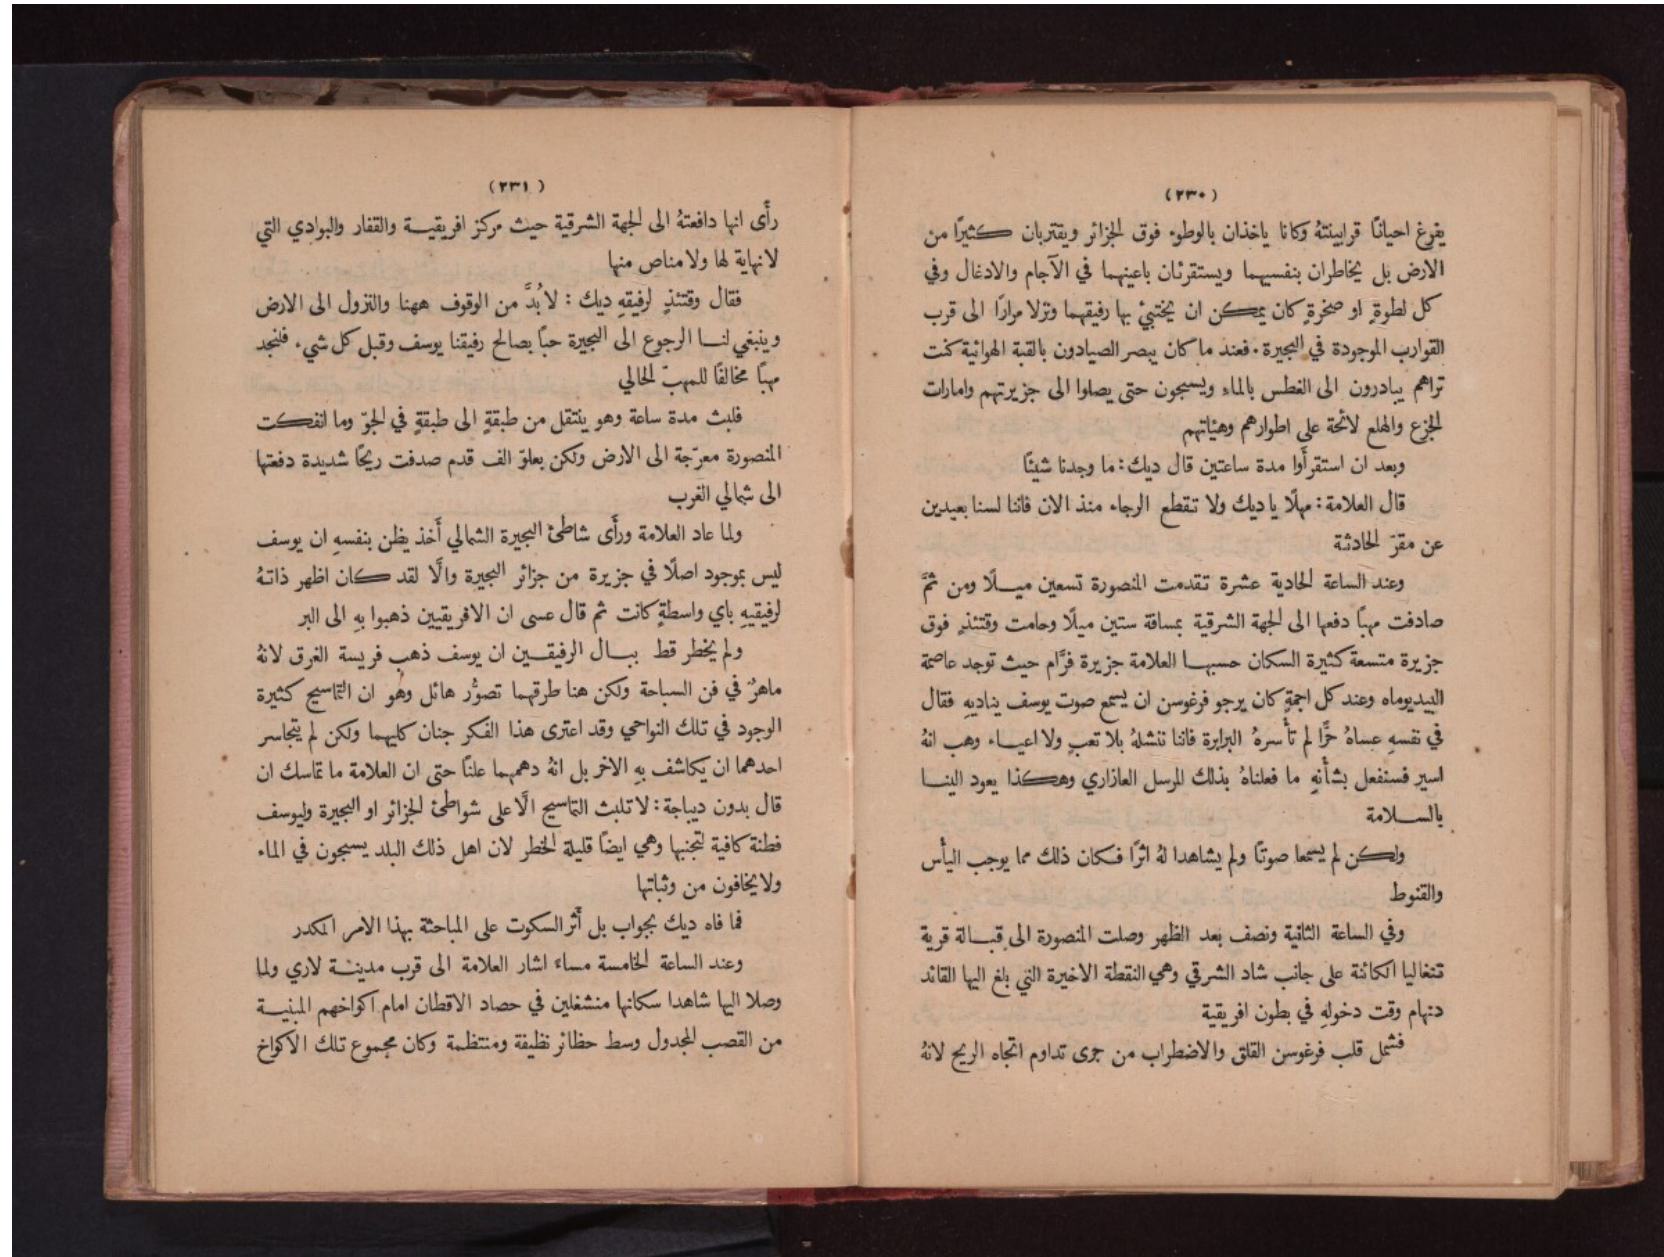 (٢٣٠)
يفرغ احيانًا قرابينتهُ وكانا ياخذان بالوطوء فوق الجزائر ويقتربان كثيرًا من
الارض بل يخاطران بنفسيهما ويستقرئان باعينهما في الآجام والادغال وفي
كل لطوةٍ او صخرةٍ كان يمكن ان يختبئ بها رفيقهما ونزلا مرارًا الى قرب
القوارب الموجودة في البحيرة. فعند ما كان يبصر الصيادون بالقبة الهوائية كنت
تراهم يبادرون الى الغطس بالماء ويسبحون حتى يصلوا الى جزيرتهم وامارات
الجزع والهلع لائحة على اطوارهم وهيئاتهم
وبعد ان استقرأوا مدة ساعتين قال ديك: ما وجدنا شيئًا
قال العلامة: مهلًا يا ديك ولا تقطع الرجاء منذ الان فاننا لسنا بعيدين
عن مقرّ الحادثة
وعند الساعة الحادية عشرة تقدمت المنصورة تسعين ميلًا ومن ثمَّ
صادفت مهبًا دفعها الى الجهة الشرقية بمسافة ستين ميلًا وحامت وقتئذٍ فوق
جزيرة متسعة كثيرة السكان حسبها العلامة جزيرة فرَّام حيث توجد عاصمة
البيديوماه وعند كل اجمةٍ كان يرجو فرغوسن ان يسمع صوت يوسف يناديهِ فقال
في نفسهِ عساهُ حرًّا لم تأسرهُ البرابرة فاننا ننشلهُ بلا تعبٍ ولا اعياء وهب انهُ
اسير فسنفعل بشأنهِ ما فعلناهُ بذلك المرسل العازاري وهكذا يعود الينا
بالسلامة
ولكن لم يسمعا صوتًا ولم يشاهدا لهُ اثرًا فكان ذلك مما يوجب اليأس
والقنوط
وفي الساعة الثانية ونصف بعد الظهر وصلت المنصورة الى قبالة قرية
تنغاليا الكائنة على جانب شاد الشرقي وهي النقطة الاخيرة التي بلغ اليها القائد
دنهام وقت دخولهِ في بطون افريقية
فشمل قلب فرغوسن القلق والاضطراب من جرى تداوم اتجاه الريح لانهُ
(٢٣١)
رأى انها دافعتهُ الى الجهة الشرقية حيث مركز افريقية والقفار والبوادي التي
لانهاية لها ولا مناص منها
فقال وقتئذٍ لرفيقهِ ديك: لا بُدَّ من الوقوف ههنا والنزول الى الارض
وينبغي لنا الرجوع الى البحيرة حبًا بصالح رفيقنا يوسف وقبل كل شيء فلنجد
مهبًا مخالفًا للمهبّ الحالي
فلبث مدة ساعة وهو ينتقل من طبقةٍ الى طبقةٍ في الجوّ وما انفكت
المنصورة معرّجة الى الارض ولكن بعلوّ الف قدم صدفت ريحًا شديدة دفعتها
الى شمالي الغرب
ولما عاد العلامة ورأى شاطئ البحيرة الشمالي أخذ يظن بنفسهِ ان يوسف
ليس بموجود اصلًا في جزيرة من جزائر البحيرة والَّا لقد كان اظهر ذاتهُ
لرفيقيهِ باي واسطةٍ كانت ثم قال عسى ان الافريقيين ذهبوا بهِ الى البر
ولم يخطر قط ببال الرفيقين ان يوسف ذهب فريسة الغرق لانهُ
ماهرٌ في فن السباحة ولكن هنا طرقهما تصوُّر هائل وهُو ان التماسيح كثيرة
الوجود في تلك النواحي وقد اعترى هذا الفكر جنان كليهما ولكن لم يتجاسر
احدهما ان يكاشف بهِ الاخر بل انهُ دهمهما علنًا حتى ان العلامة ما تماسك ان
قال بدون ديباجة: لا تلبث التماسيح الَّا على شواطئ الجزائر او البحيرة وليوسف
فطنة كافية لتجنبها وهي ايضًا قليلة الخطر لان اهل ذلك البلد يسبحون في الماء
ولا يخافون من وثباتها
فما فاه ديك بجواب بل أثر السكوت على المباحثة بهذا الامر المكدر
وعند الساعة الخامسة مساء اشار العلامة الى قرب مدينة لاري ولما
وصلا اليها شاهدا سكانها منشغلين في حصاد الاقطان امام اكواخهم المبنية
من القصب المجدول وسط حظائر نظيفة ومنتظمة وكان مجموع تلك الاكواخ